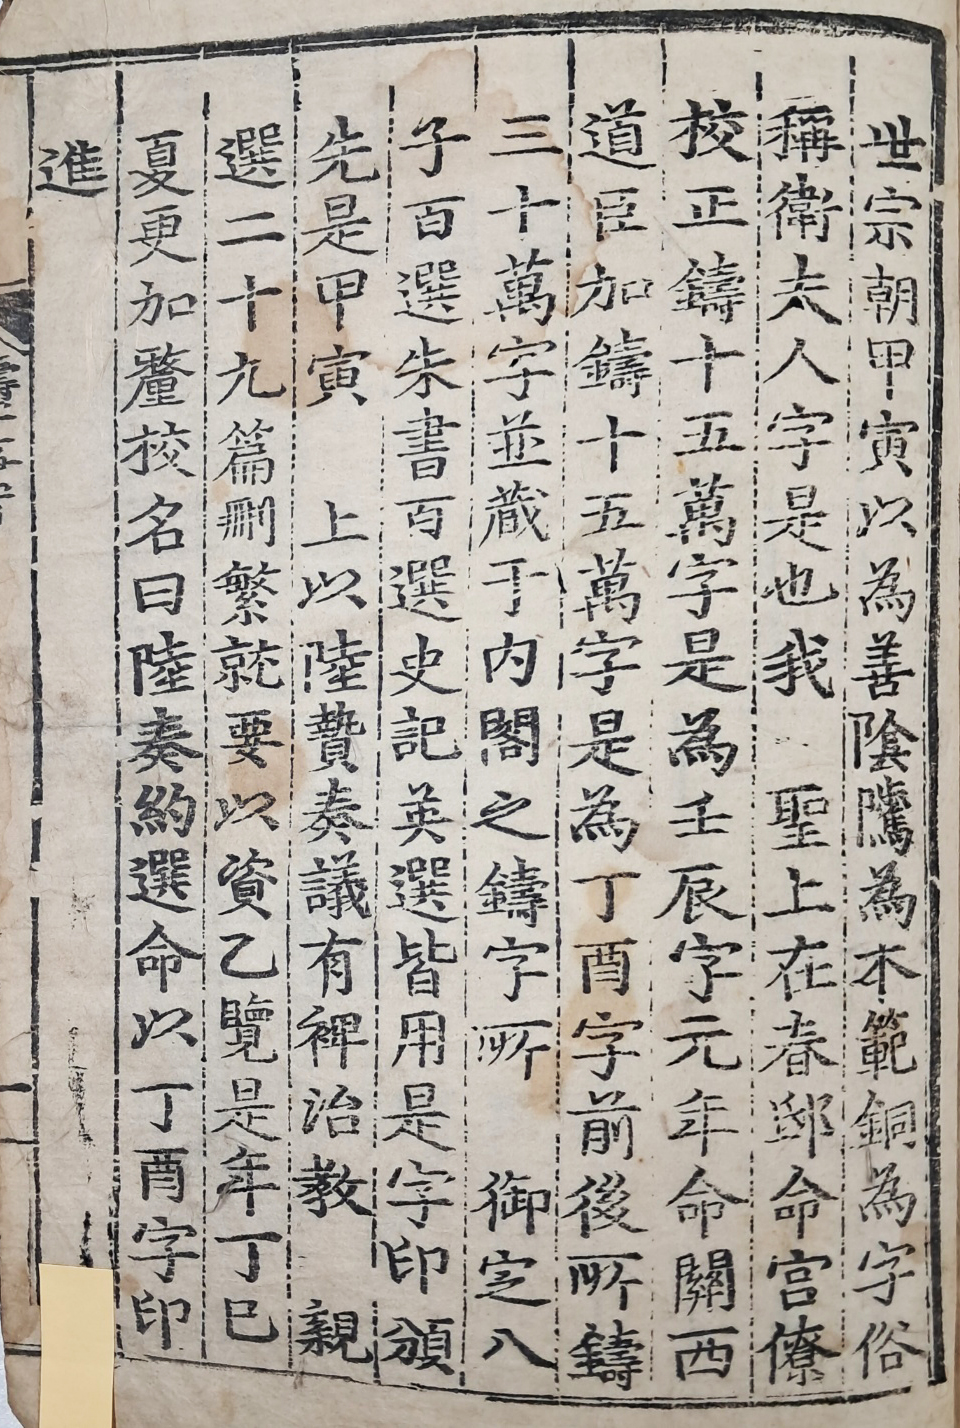 世宗朝甲寅以為善陰隲為本範銅為字俗
稱衛夫人字是也我　聖上在春邸命宮僚
校正鑄十五萬字是為壬辰字元年命關西
道臣加鑄十五萬字是為丁酉字前後所鑄
三十萬字並藏于內閣之鑄字所　御定八
子百選朱書百選史記英選皆用是字印頒
先是甲寅　上以陸贄奏議有裨治教　親
選二十九篇刪繁就要以資乙覽是年丁巳
夏更加釐校名曰陸奏約選命以丁酉字印
進